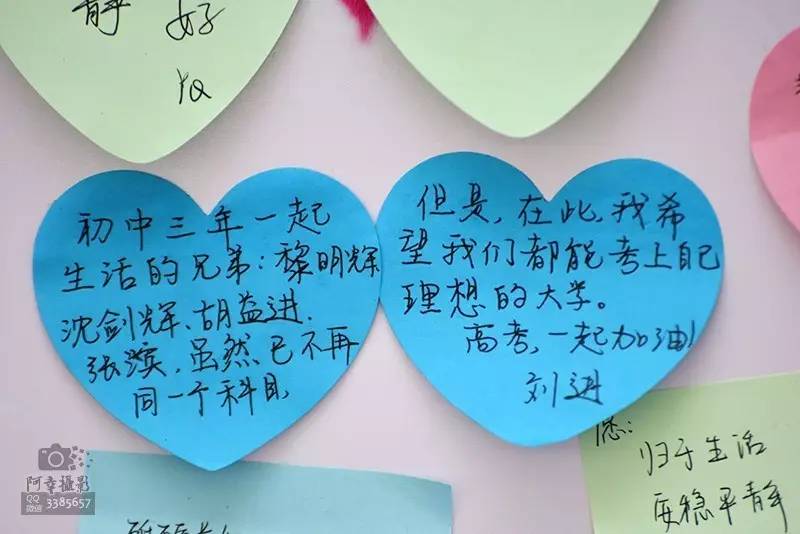 静 好
初中三年一起
生活的兄弟:黎明辉
沈剑辉、胡益进、
张滨,虽然已不再
同一个科目
但是,在此,我希
望我们都能考上自己
理想的大学。
高考,一起加油!
刘进
愿:
归于生活
安稳平静
阿幸摄影
QQ
微信 3385657